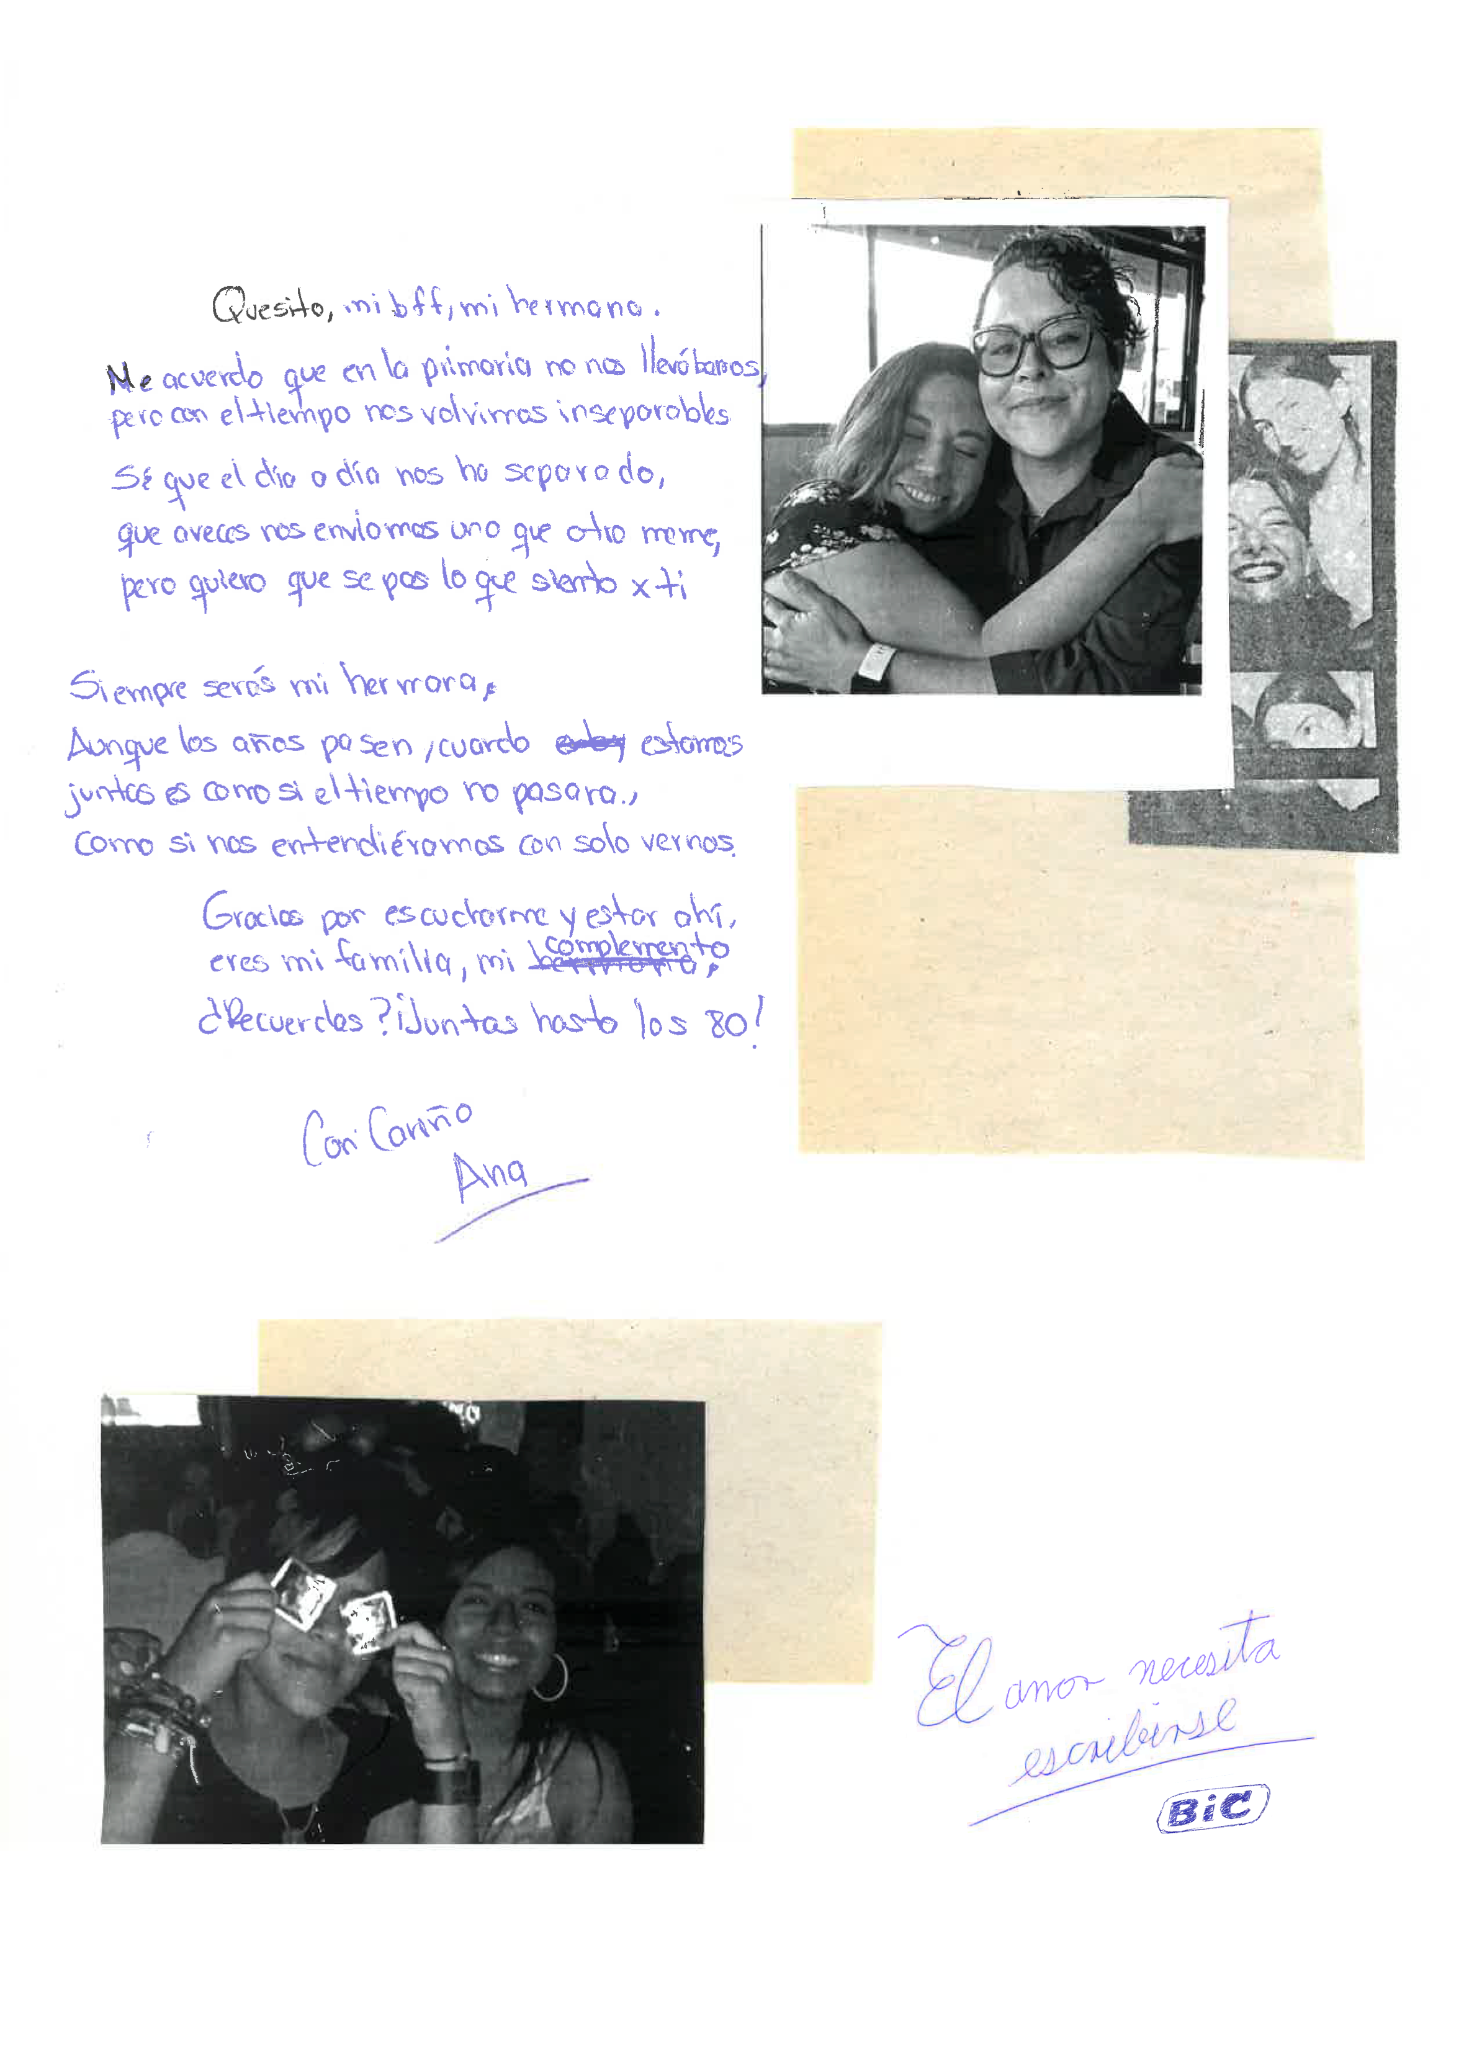 Quesito, mi bff, mi hermana.
Me acuerdo que en la primaria no nos llevábamos,
pero con el tiempo nos volvimos inseparables
Sé que el día a día nos ha separado,
que aveces nos enviamos uno que otro meme,
pero quiero que sepas lo que siento x ti
Siempre serás mi hermana,
Aunque los años pasen, cuando estamos
juntas es como si el tiempo no pasara.,
Como si nos entendiéramos con solo vernos.
Gracias por escucharme y estar ahí,
eres mi familia, mi hermana, complemento
¿Recuerdas? ¡Juntas hasta los 80!
Con Cariño
Ana
El amor necesita
escribirse
BiC